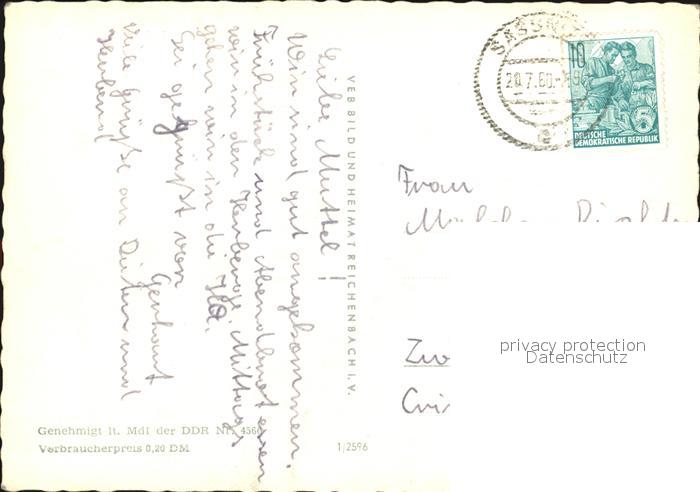 Liebe Muttel!
Wir sind gut angekommen.
Frühstück und Abendbrot essen
wir in den Herberge. Mittags
gehen wir in die HO.
Sei gegrüßt von
Gerhard
Viele Grüße an Dieter und
VEB BILD UND HEIMAT REICHENBACH I. V.
SASSN
20.7.60.
e
10
5
DEUTSCHE
DEMOKRATISCHE REPUBLIK
Frau
Zw
Cri
privacy protection
Datenschutz
Genehmigt lt. MdI der DDR Nr. 4560
Verbraucherpreis 0,20 DM
1/2596